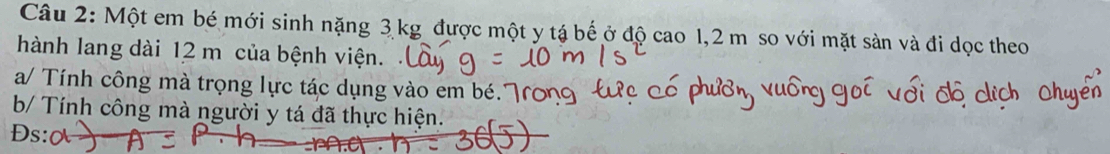 Câu 2: Một em bé mới sinh nặng 3 kg được một y tá bế ở độ cao 1,2 m so với mặt sàn và đi dọc theo
hành lang dài 12 m của bệnh viện. . Lấy g = 10 m/s²
a/ Tính công mà trọng lực tác dụng vào em bé. Trọng lực có phương vuông góc với độ dịch chuyển
b/ Tính công mà người y tá đã thực hiện.
Đs: a) A = P.h = m.g.h = 36(J)